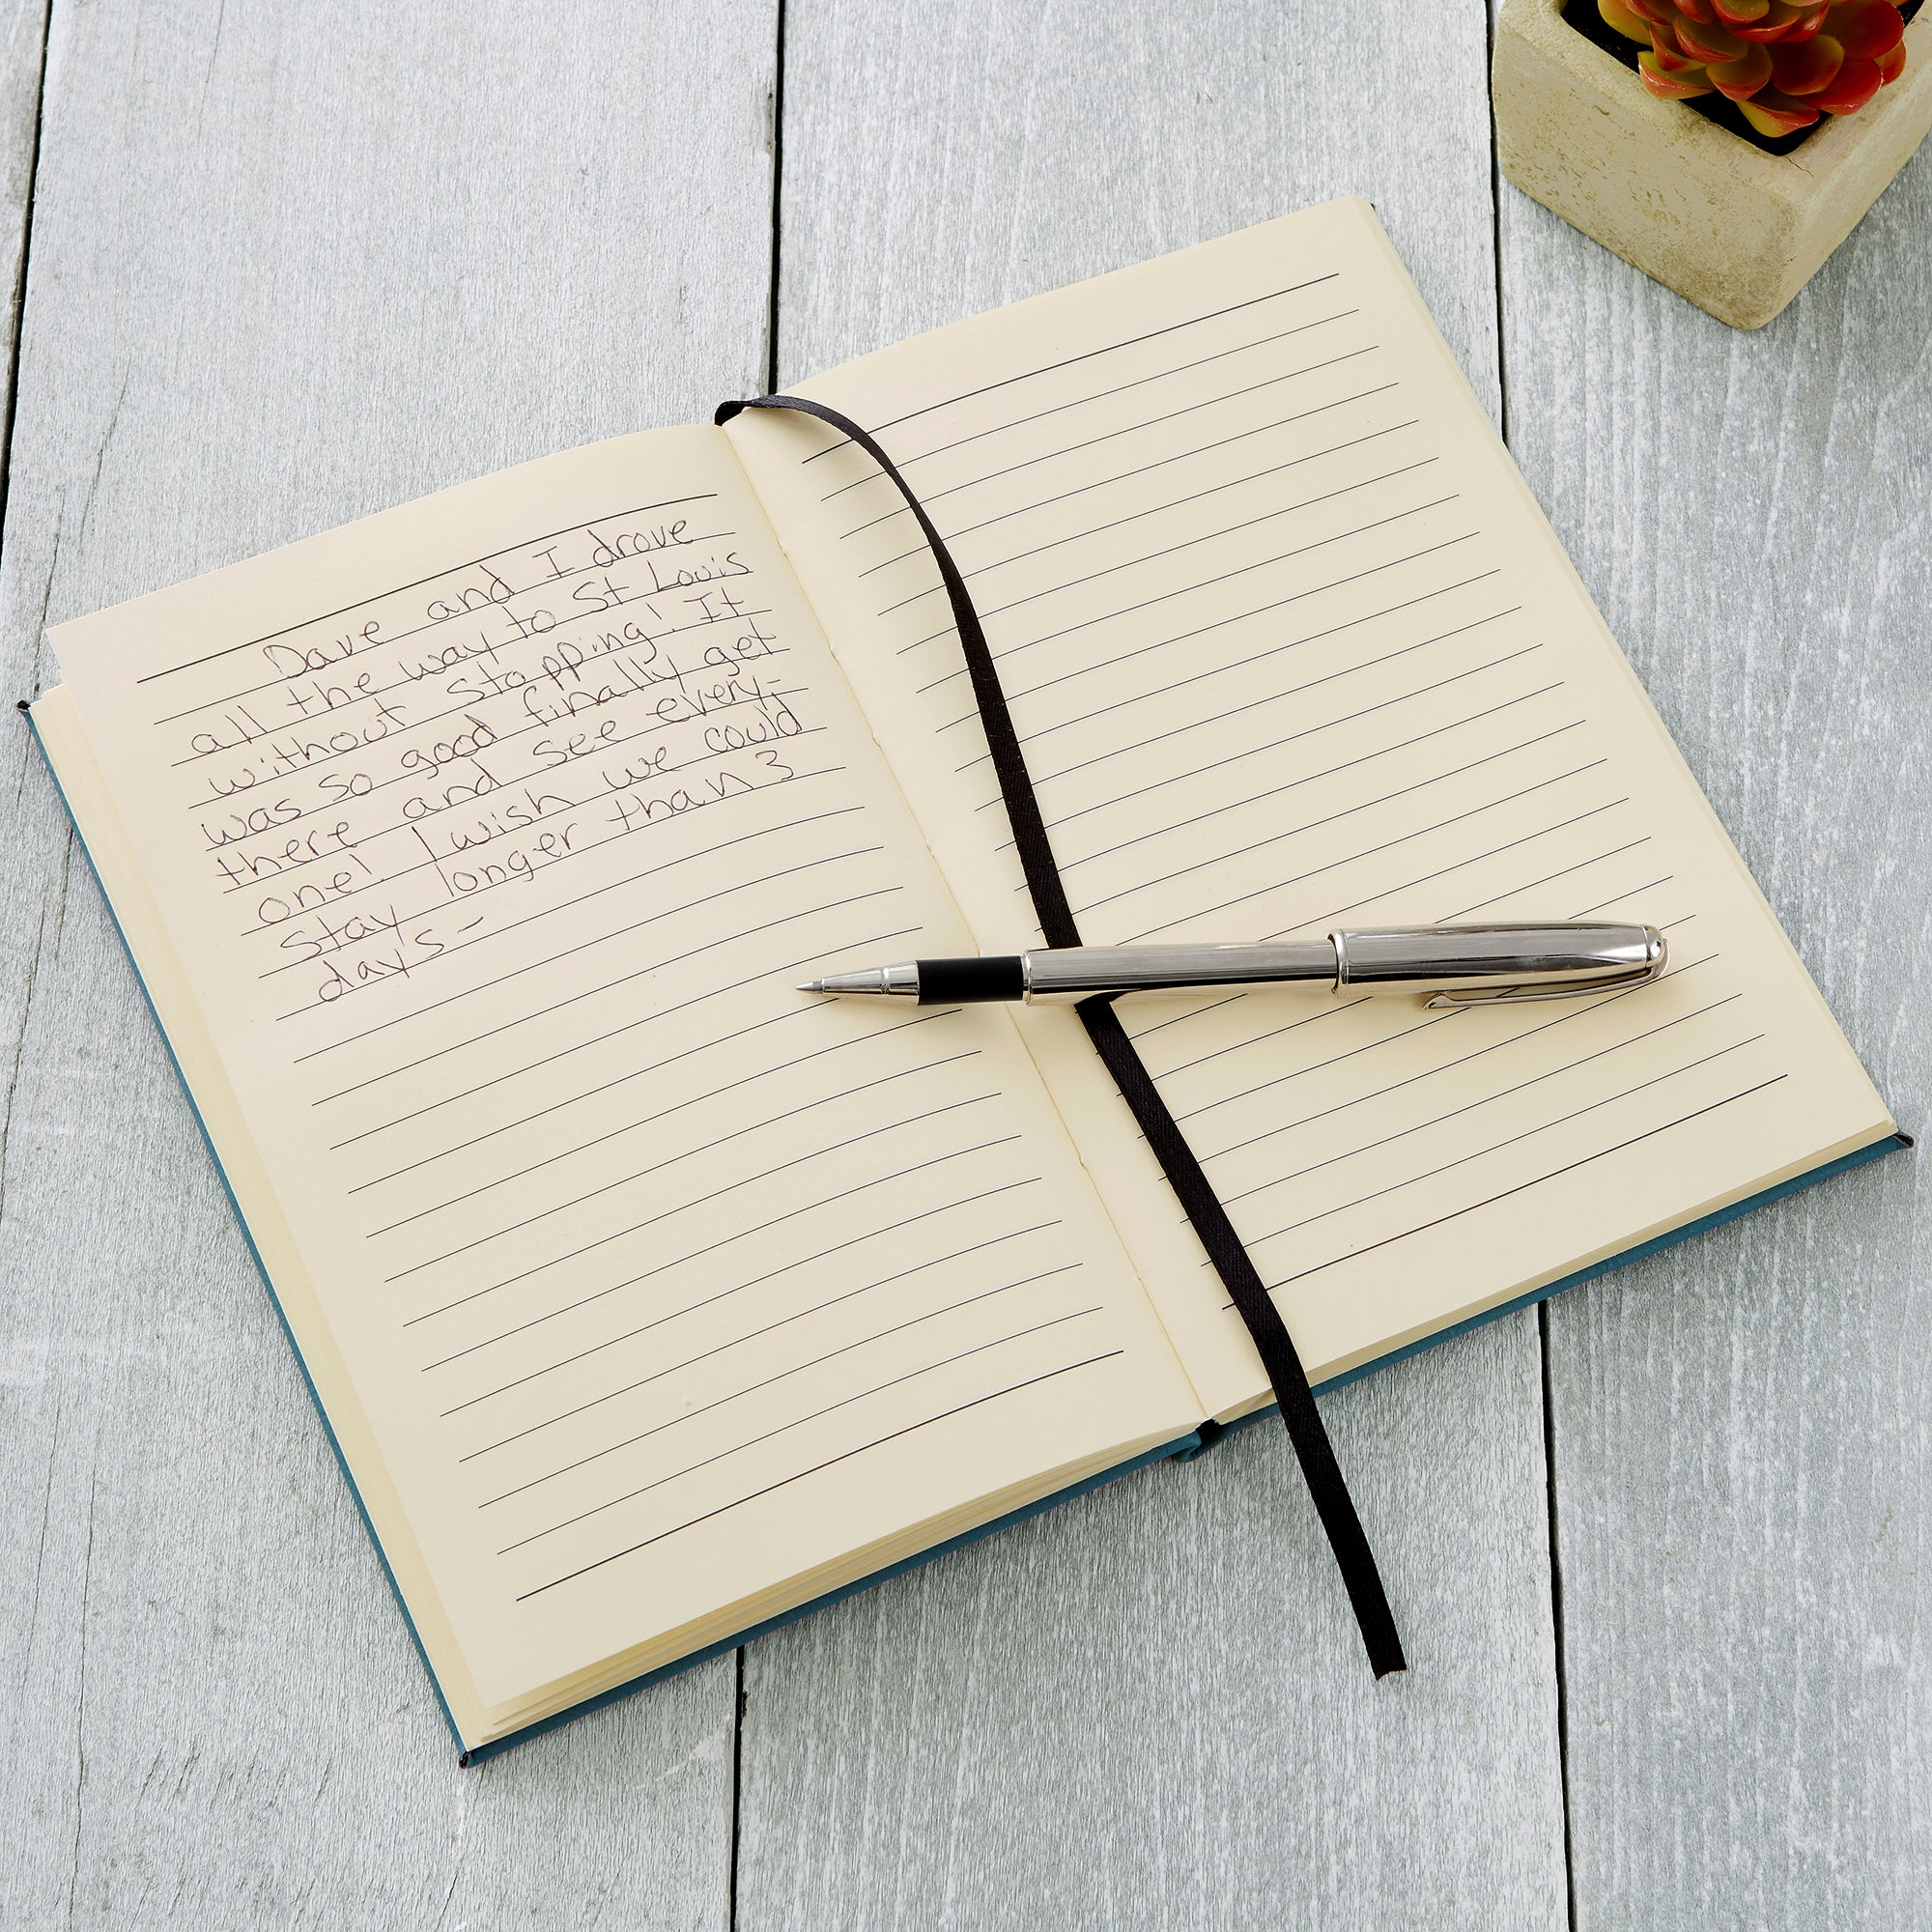 Dave and I drove
all the way to St Louis
without stopping! It
was so good finally get
there and see every-
one! I wish we could
stay longer than 3
days-